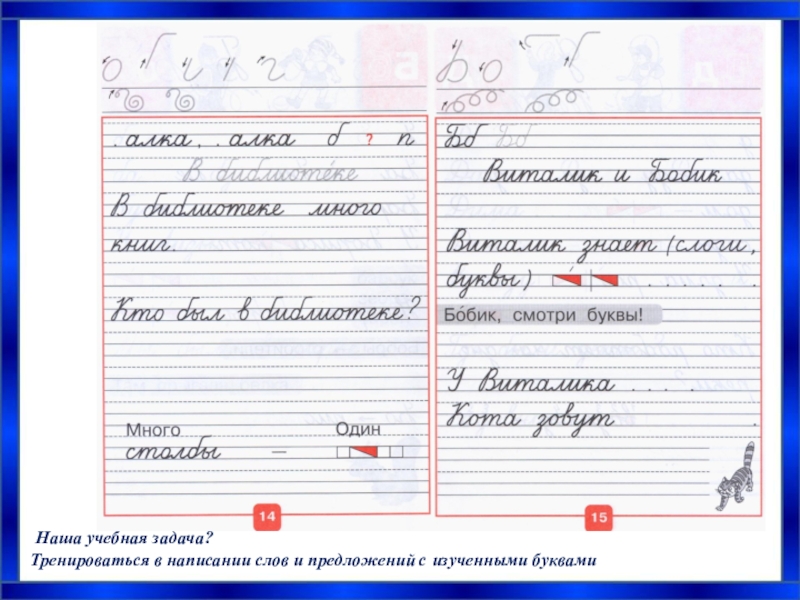 . алка, . алка б ? п
В библиоте́ке
В библиотеке много
книг.
Кто был в библиотеке?
Много Один
столбы –
14
Бб Бб
Виталик и Бобик
Виталик знает (слоги,
буквы) . . . . . .
Бо́бик, смотри буквы!
У Виталика . . . .
Кота зовут .
15
Наша учебная задача?
Тренироваться в написании слов и предложений с изученными буквами